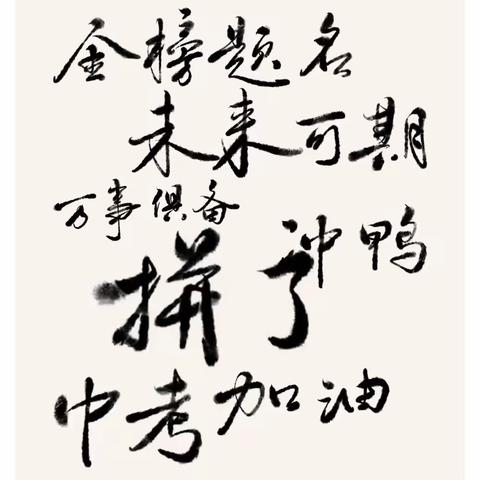 金榜题名
未来可期
万事俱备
冲鸭
拼了
中考加油